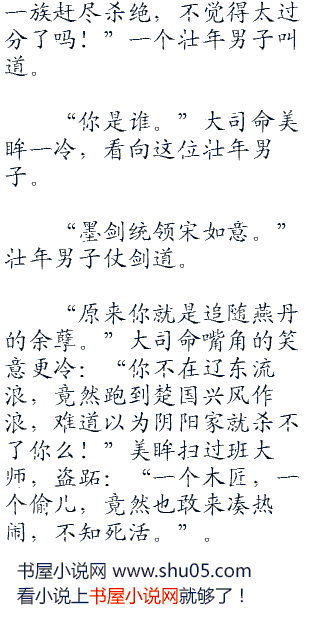 一族赶尽杀绝，不觉得太过
分了吗！”一个壮年男子叫
道。
“你是谁。”大司命美
眸一冷，看向这位壮年男
子。
“墨剑统领宋如意。”
壮年男子仗剑道。
“原来你就是追随燕丹
的余孽。”大司命嘴角的笑
意更冷：“你不在辽东流
浪，竟然跑到楚国兴风作
浪，难道以为阴阳家就杀不
了你么！”美眸扫过班大
师，盗跖：“一个木匠，一
个偷儿，竟然也敢来凑热
闹，不知死活。”。
书屋小说网 www.shu05.com
看小说上书屋小说网就够了！